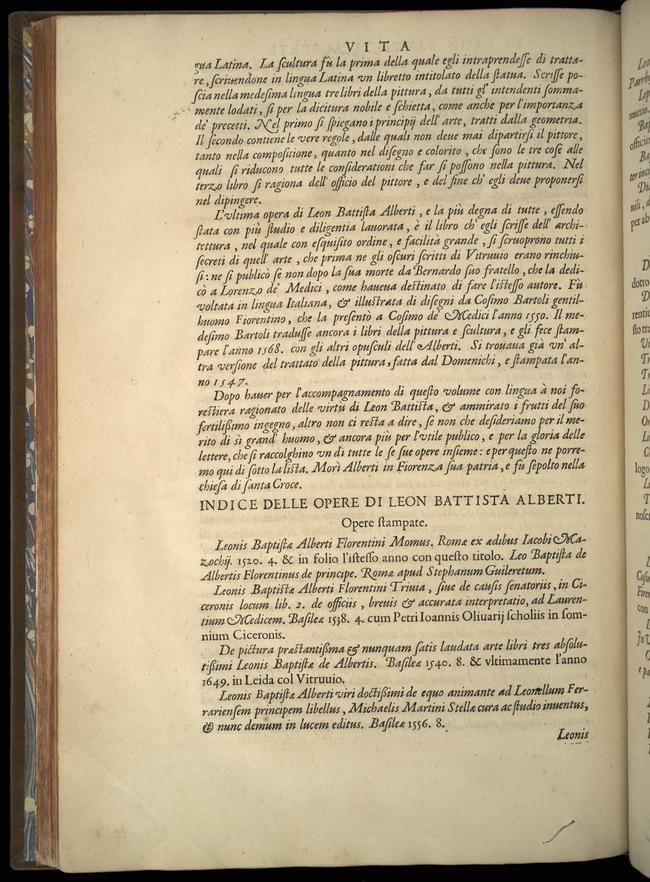 VITA
gua Latina. La scultura fù la prima della quale egli intraprendesse di tratta-
re, scriuendone in lingua Latina vn libretto intitolato della statua. Scrisse po-
scia nella medesima lingua tre libri della pittura, da tutti gl' intendenti somma-
mente lodati, si per la dicitura nobile e schietta, come anche per l'importanza
de' precetti. Nel primo si spiegano i principij dell' arte, tratti dalla geometria.
Il secondo contiene le vere regole, dalle quali non deue mai dipartirsi il pittore,
tanto nella compositione, quanto nel disegno e colorito, che sono le tre cose alle
quali si riducono tutte le considerationi che far si possono nella pittura. Nel
terzo libro si ragiona dell' officio del pittore, e del fine ch' egli deue proponersi
nel dipingere.
L'vltima opera di Leon Battista Alberti, e la più degna di tutte, essendo
stata con più studio e diligentia lauorata, è il libro ch' egli scrisse dell' archi-
tettura, nel quale con esquisito ordine, e facilità grande, si scruoprono tutti i
secreti di quell' arte, che prima ne gli oscuri scritti di Vitruuio erano rinchiu-
si: ne si publicò se non dopo la sua morte da Bernardo suo fratello, che la dedi-
cò a Lorenzo de' Medici, come haueua destinato di fare l'istesso autore. Fù
voltata in lingua Italiana, & illustrata di disegni da Cosimo Bartoli gentil-
huomo Fiorentino, che la presentò a Cosimo de' Medici l'anno 1550. Il me-
desimo Bartoli tradusse ancora i libri della pittura e scultura, e gli fece stam-
pare l'anno 1568. con gli altri opusculi dell' Alberti. Si trouaua già vn' al-
tra versione del trattato della pittura, fatta dal Domenichi, e stampata l'an-
no 1547.
Dopo hauer per l'accompagnamento di questo volume con lingua à noi fo-
restiera ragionato delle virtù di Leon Battista, & ammirato i frutti del suo
fertilissimo ingegno, altro non ci resta a dire, se non che desideriamo per il me-
rito di sì grand' huomo, & ancora più per l'vtile publico, e per la gloria delle
lettere, che si raccolghino vn dì tutte le se sue opere insieme: e per questo ne porre-
mo qui di sotto la lista. Morì Alberti in Fiorenza sua patria, e fù sepolto nella
chiesa di santa Croce.
INDICE DELLE OPERE DI LEON BATTISTA ALBERTI.
Opere stampate.
Leonis Baptistæ Alberti Florentini Momus. Romæ ex ædibus Iacobi Ma-
zochij. 1520. 4. & in folio l'istesso anno con questo titolo. Leo Baptista de
Albertis Florentinus de principe. Romæ apud Stephanum Guileretum.
Leonis Baptistæ Alberti Florentini Triuia, siue de causis senatoriis, in Ci-
ceronis locum lib. 2. de officiis, breuis & accurata interpretatio, ad Lauren-
tium Medicem. Basileæ 1538. 4. cum Petri Ioannis Oliuarij scholiis in som-
nium Ciceronis.
De pictura præstantissima & nunquam satis laudata arte libri tres absolu-
tissimi Leonis Baptistæ de Albertis. Basileæ 1540. 8. & vltimamente l'anno
1649. in Leida col Vitruuio.
Leonis Baptistæ Alberti viri doctissimi de equo animante ad Leonellum Fer-
rariensem principem libellus, Michaelis Martini Stellæ cura ac studio inuentus,
& nunc demum in lucem editus. Basileæ 1556. 8.
Leonis